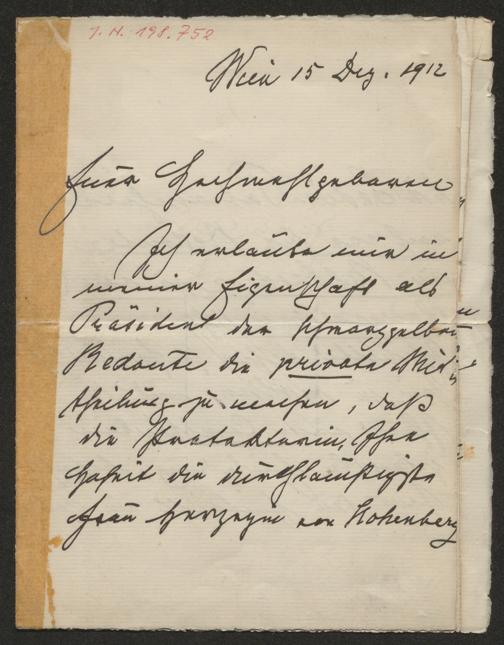 I. N. 198.752
Wien 15 Dez. 1912
Euer Hochwohlgeboren
Ich erlaube mir in
meiner Eigenschaft als
Präsident der schwarzgelben
Redoute die private Mit-
theilung zu machen, daß
die Protektorin, Ihre
Hoheit die durchlauchtigste
Frau Herzogin von Hohenberg